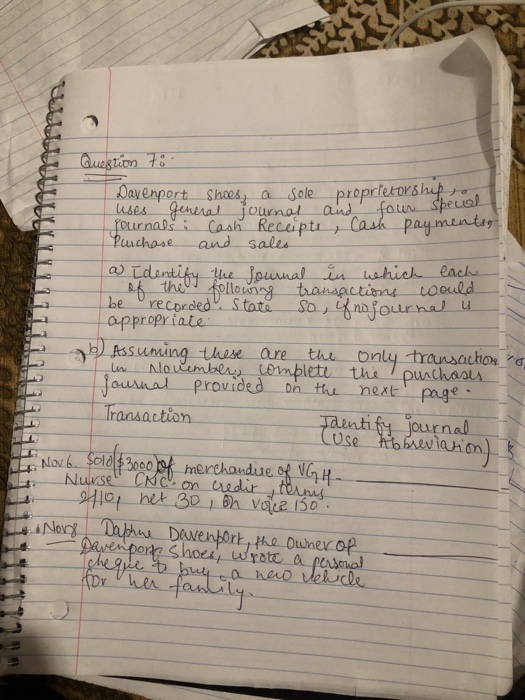 Question 7:-
Davenport shoes, a sole proprietorship,
uses general journal and four special
journals: Cash Receipts, Cash payments,
Purchase and sales
a) Identify the Journal in which each
of the following transactions would
be recorded. State so, if no journal is
appropriate.
b) Assuming these are the only transactions
in November, complete the purchases
journal provided on the next page.
Transaction Identify journal
(Use Abbreviation)
Nov 6. Sold ($3000) of merchandise of VGH
Nurse on credit, terms
2/10, net 30, 150.
Nov 8 Daphne Davenport, the owner of
Davenport Shoes, wrote a personal
cheque to buy a new vehicle
for her family.